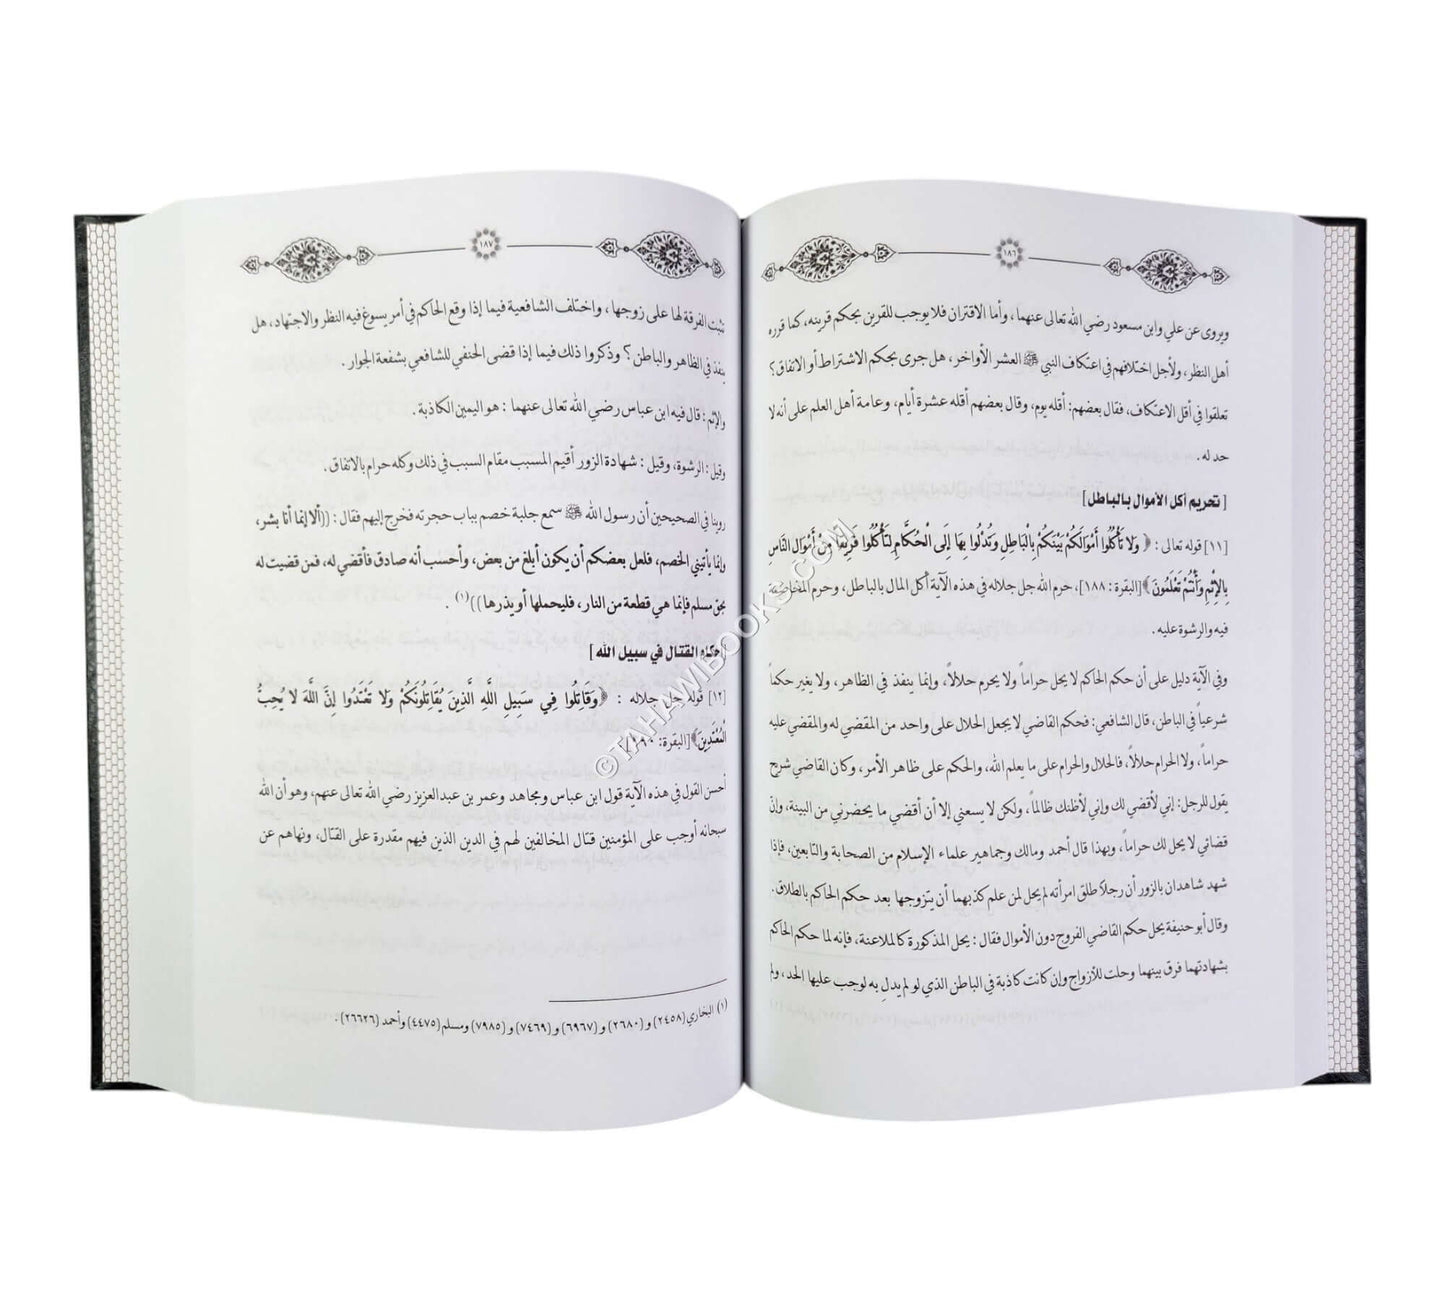 ١٨٦
ويروى عن علي وابن مسعود رضي الله تعالى عنهما، وأما الاقتران فلا يوجب للقرين بحكم قرينه، كما قرره
أهل النظر، ولأجل اختلافهم في اعتكاف النبي ﷺ العشر الأواخر، هل جرى بحكم الاشتراط أو الاتفاق؟
تعلقوا في أقل الاعتكاف، فقال بعضهم: أقله يوم، وقال بعضهم أقله عشرة أيام، وعامة أهل العلم على أنه لا
حد له.
[تحريم أكل الأموال بالباطل]
[١١] قوله تعالى: ﴿وَلا تَأْكُلُوا أَمْوَالَكُمْ بَيْنَكُمْ بِالْبَاطِلِ وَتُدْلُوا بِهَا إِلَى الْحُكَّامِ لِتَأْكُلُوا فَرِيقًا مِنْ أَمْوَالِ النَّاسِ
بِالإِثْمِ وَأَنْتُمْ تَعْلَمُونَ﴾[البقرة: ١٨٨]، حرم الله جل جلاله في هذه الآية أكل المال بالباطل، وحرم المخاصمة
فيه والرشوة عليه.
وفي الآية دليل على أن حكم الحاكم لا يحل حراماً ولا يحرم حلالاً، وإنما ينفذ في الظاهر، ولا يغير حكماً
شرعياً في الباطن، قال الشافعي: فحكم القاضي لا يجعل الحلال على واحد من المقضي له والمقضي عليه
حراماً، ولا الحرام حلالاً، فالحلال والحرام على ما يعلم الله، والحكم على ظاهر الأمر، وكان القاضي شريح
يقول للرجل: إني لأقضي لك وإني لأظنك ظالماً، ولكن لا يسعني إلا أن أقضي ما يحضرني من البينة، وإن
قضائي لا يحل لك حراماً، وبهذا قال أحمد ومالك وجماهير علماء الإسلام من الصحابة والتابعين، فإذا
شهد شاهدان بالزور أن رجلاً طلق امرأته لم يحل لمن علم كذبهما أن يتزوجها بعد حكم الحاكم بالطلاق.
وقال أبو حنيفة يحل حكم القاضي الفروج دون الأموال فقال: يحل المذكورة كالملاعنة، فإنه لما حكم الحاكم
بشهادتهما فرق بينهما وحلت للأزواج وإن كانت كاذبة في الباطن الذي لو لم يدل به لوجب عليها الحد، ولم
١٨٧
تثبت الفرقة لها على زوجها، واختلف الشافعية فيما إذا وقع الحاكم في أمر يسوغ فيه النظر والاجتهاد، هل
ينفذ في الظاهر والباطن؟ وذكروا ذلك فيما إذا قضى الحنفي للشافعي بشفعة الجوار.
والإثم: قال فيه ابن عباس رضي الله تعالى عنهما: هو اليمين الكاذبة.
وقيل: الرشوة، وقيل: شهادة الزور أقيم المسبب مقام السبب في ذلك وكله حرام بالاتفاق.
روينا في الصحيحين أن رسول الله ﷺ سمع جلبة خصم بباب حجرته فخرج إليهم فقال: ((ألا إنما أنا بشر،
وإنما يأتيني الخصم، فلعل بعضكم أن يكون أبلغ من بعض، وأحسب أنه صادق فأقضي له، فمن قضيت له
بحق مسلم فإنما هي قطعة من النار، فليحملها أو يذرها))(١).
[حكم القتال في سبيل الله]
[١٢] قوله جل جلاله: ﴿وَقَاتِلُوا فِي سَبِيلِ اللَّهِ الَّذِينَ يُقَاتِلُونَكُمْ وَلا تَعْتَدُوا إِنَّ اللَّهَ لا يُحِبُّ
الْمُعْتَدِينَ﴾[البقرة: ١٩٠]
أحسن القول في هذه الآية قول ابن عباس ومجاهد وعمر بن عبد العزيز رضي الله تعالى عنهم، وهو أن الله
سبحانه أوجب على المؤمنين قتال المخالفين لهم في الدين الذين فيهم مقدرة على القتال، ونهاهم عن
(١) البخاري (٢٤٥٨) و (٢٦٨٠) و (٦٩٦٧) و (٧٤٦٩) و (٧٩٨٥) ومسلم (٤٤٧٥) وأحمد (٢٦٦٢٦).
©TAHAWIBOOKS.COM